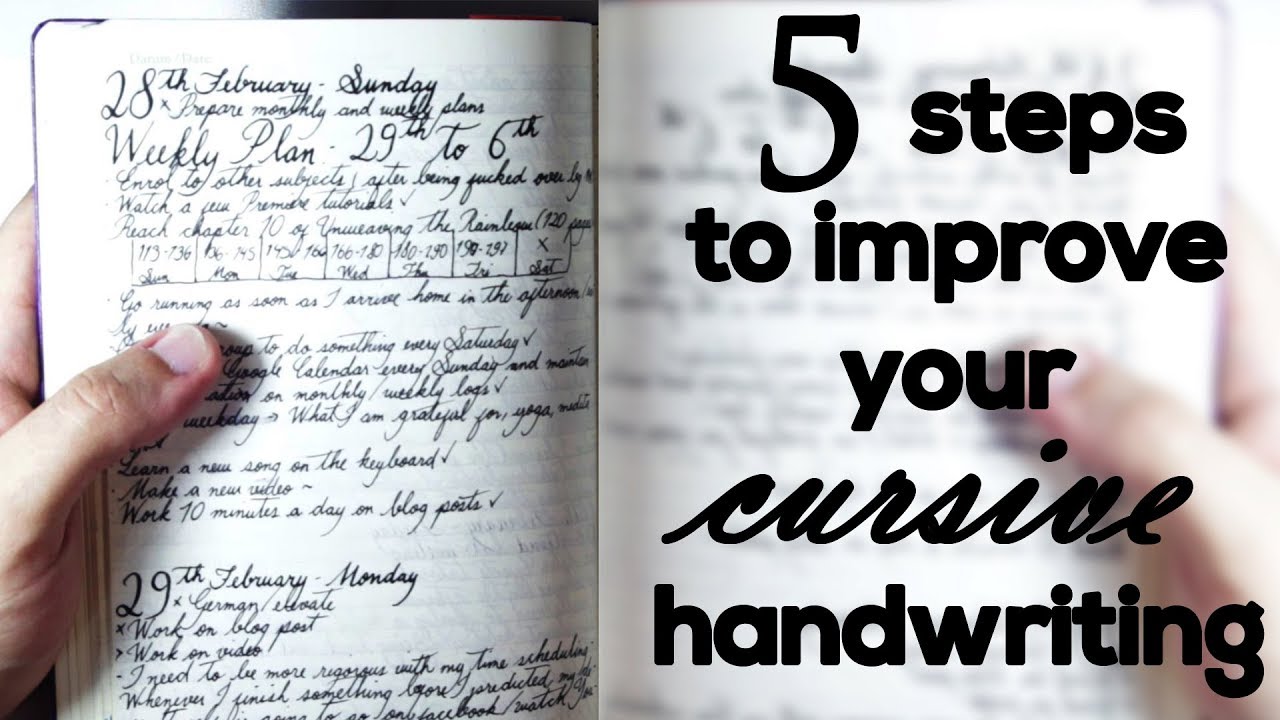 Datum/Date:
28th February - Sunday
× Prepare monthly and weekly plans
Weekly Plan - 29th to 6th
· Enrol to other subjects, after being fucked over by
· Watch a few Premiere tutorials ✓
Reach chapter 10 of Unweaving the Rainbow (120 pages
113-136 136-145 145-166 166-180 180-190 190-297 ×
Sun Mon Tue Wed Thu Fri Sat
· Go running as soon as I arrive home in the afternoon/
to do something every Saturday ✓
Google Calendar every Sunday and maintain
on monthly/weekly logs ✓
weekday → What I am grateful for, yoga,
Learn a new song on the keyboard ✓
· Make a new video ~
Work 10 minutes a day on blog posts ✓
29th February - Monday
× German/elevate
× Work on blog post
> Work on video
- I need to be more rigorous with my time scheduling.
Whenever I finish something before I predicted my
going to go on facebook/watch
5 steps
to improve
your
cursive
handwriting